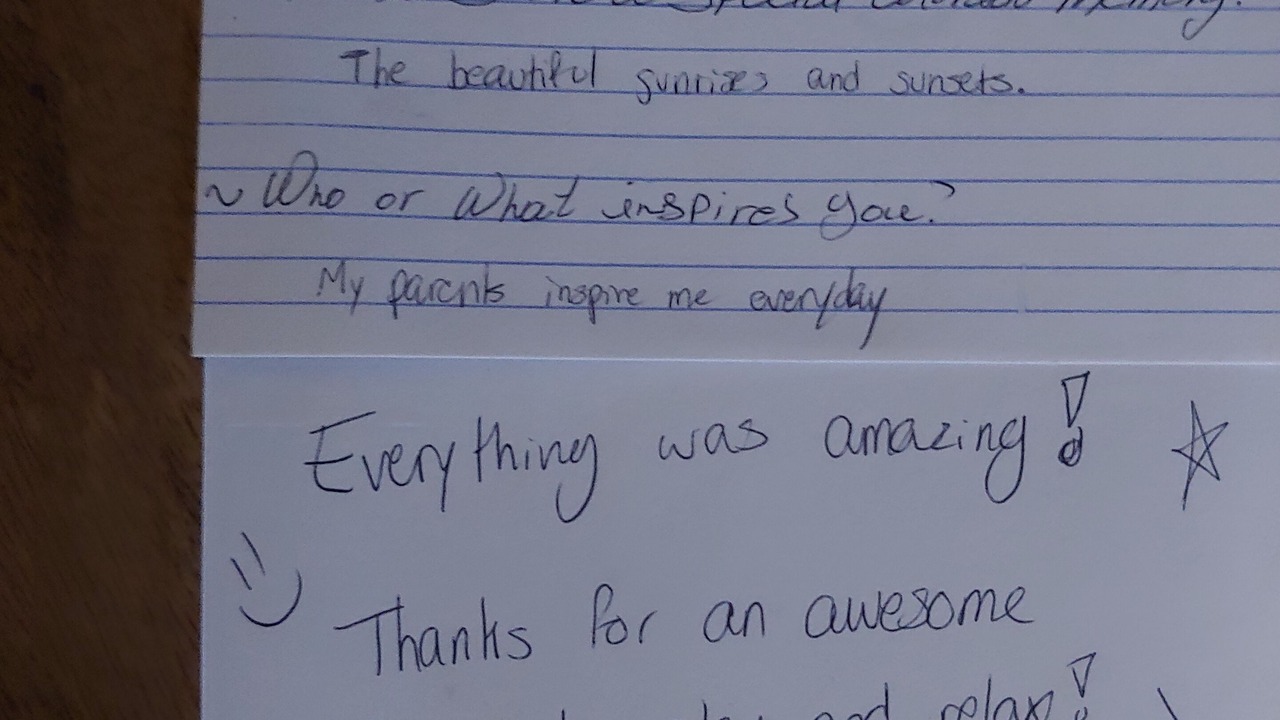 special memory.
The beautiful sunrises and sunsets.
~ Who or What inspires you?
My parents inspire me everyday
Everything was amazing!
Thanks for an awesome
and relax!